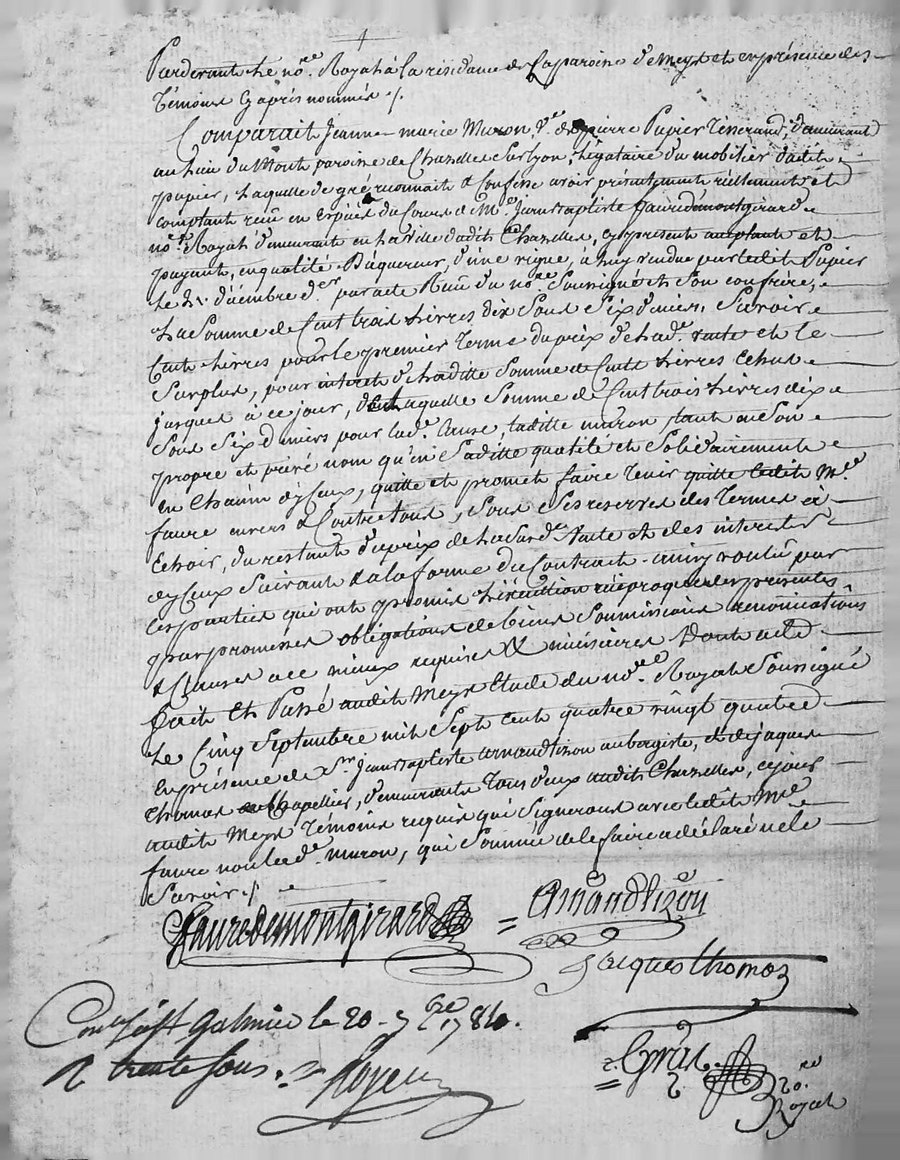 Pardevant le no.re Royal à la résidance de la paroisse de Meys et en présence des
témoins cy après nommés ./.
Comparait Jeanne-marie Muron v.e de pierre Papier tisserand, demeurant
au lieu du Mont paroisse de Chazelles sur lyon, légataire du mobilier dudit
papier, laquelle de gré reconnait & confesse avoir présentement réellement et
comptant reçu en espèces du cours de M.e Jean Baptiste fauredemontgirard
no.re Royal demeurant en la ville dudit Chazelles, cy présent et
payant, en qualité d'aquereur, d'une vigne, à luy vendue par ledit Papier
le décembre d.er par acte Reçu du no.re soussigné et son confrère,
la somme de Cent trois livres dix sous six deniers, savoir
Cent livres pour le premier terme du prix de lad.e vente et le
surplus, pour interet de laditte somme de Cent livres échus
jusques à ce jour, de laquelle somme de Cent trois livres dix
sous six deniers pour lad.e cause, laditte muron tant en son
propre et privé nom qu'en saditte qualité et solidairement
en chacun d'yceux, quitte et promet faire tenir quitte ledit M.e
faure envers & contre tous, sous les reserves des termes à
échoir, du restant du prix de la susd.e vente et des interets
d'yceux suivant & à la forme du Contrat. ainsy voulu par
les parties qui ont promis l'exécution réciproque des présentes
par promesses obligations de biens soumissions rénonciations
& clauses à ce mieux requises & nécéssaires Dont acte
fait et Passé audit Meys étude du no.re Royal soussigné
le Cinq Septembre mil sept cent quatre vingt quatre
en présence de S.r Jean Baptiste arnaudtizon aubergiste, & de jaques
thomas chapellier, demeurants tous deux audit Chazelles, cejour
audit Meys témoins requis qui signeront avec ledit M.e
faure non lad.e muron, qui sommée de le faire a déclaré ne le
savoir ./.
fauredemontgirard
Arnaudtizon
Jacques thomas
Con.lé à S.t Galmier le 20 7bre 1784.
R trente sous.
Gras no.re Royal